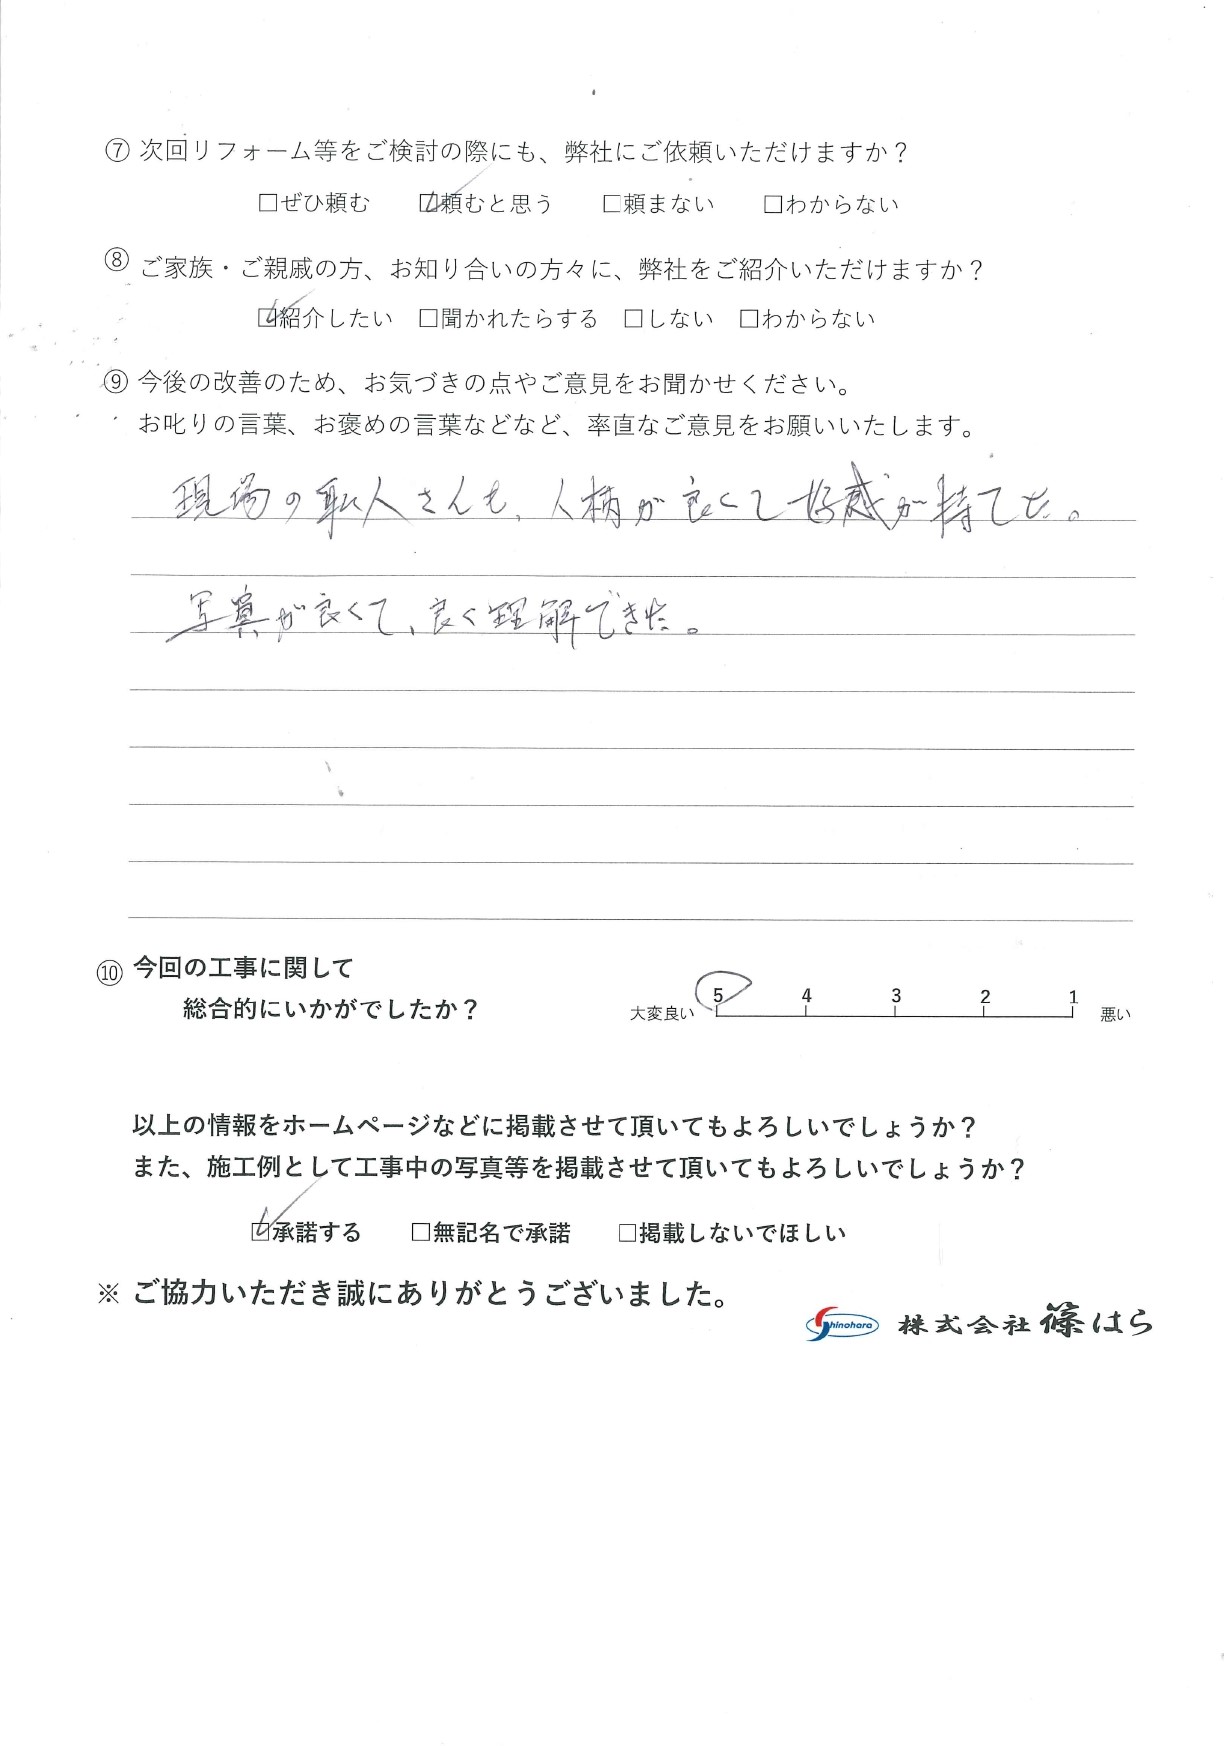 ⑦ 次回リフォーム等をご検討の際にも、弊社にご依頼いただけますか？
□ぜひ頼む ☑頼むと思う □頼まない □わからない
⑧ ご家族・ご親戚の方、お知り合いの方々に、弊社をご紹介いただけますか？
☑紹介したい □聞かれたらする □しない □わからない
⑨ 今後の改善のため、お気づきの点やご意見をお聞かせください。
お叱りの言葉、お褒めの言葉などなど、率直なご意見をお願いいたします。
現場の職人さんも、人柄が良くて好感が持てた。
写真が良くて、良く理解できた。
⑩ 今回の工事に関して
総合的にいかがでしたか？
大変良い 5 4 3 2 1 悪い
以上の情報をホームページなどに掲載させて頂いてもよろしいでしょうか？
また、施工例として工事中の写真等を掲載させて頂いてもよろしいでしょうか？
☑承諾する □無記名で承諾 □掲載しないでほしい
※ ご協力いただき誠にありがとうございました。
Shinohara 株式会社 篠はら